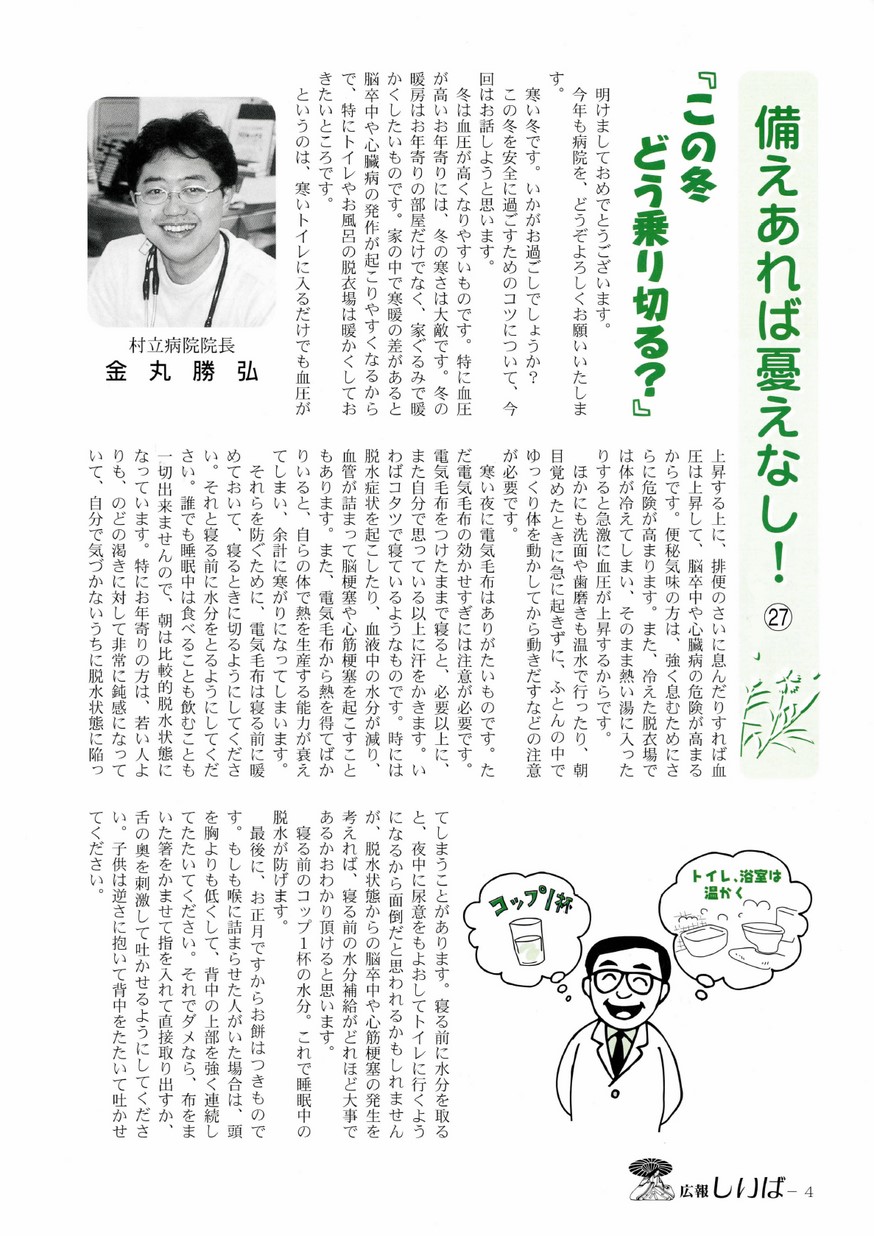 備えあれば憂えなし! ㉗
『この冬
どう乗り切る?』
明けましておめでとうございます。
今年も病院を、どうぞよろしくお願いいたしま
す。
寒い冬です。いかがお過ごしでしょうか?
この冬を安全に過ごすためのコツについて、今
回はお話しようと思います。
冬は血圧が高くなりやすいものです。特に血圧
が高いお年寄りには、冬の寒さは大敵です。冬の
暖房はお年寄りの部屋だけでなく、家ぐるみで暖
かくしたいものです。家の中で寒暖の差があると
脳卒中や心臓病の発作が起こりやすくなるから
で、特にトイレやお風呂の脱衣場は暖かくしてお
きたいところです。
というのは、寒いトイレに入るだけでも血圧が
村立病院院長
金丸勝弘
上昇する上に、排便のさいに息んだりすれば血
圧は上昇して、脳卒中や心臓病の危険が高まる
からです。便秘気味の方は、強く息むためにさ
らに危険が高まります。また、冷えた脱衣場で
は体が冷えてしまい、そのまま熱い湯に入った
りすると急激に血圧が上昇するからです。
ほかにも洗面や歯磨きも温水で行ったり、朝
目覚めたときに急に起きずに、ふとんの中で
ゆっくり体を動かしてから動きだすなどの注意
が必要です。
寒い夜に電気毛布はありがたいものです。た
だ電気毛布の効かせすぎには注意が必要です。
電気毛布をつけたままで寝ると、必要以上に、
また自分で思っている以上に汗をかきます。い
わばコタツで寝ているようなものです。時には
脱水症状を起こしたり、血液中の水分が減り、
血管が詰まって脳梗塞や心筋梗塞を起こすこと
もあります。また、電気毛布から熱を得てばか
りいると、自らの体で熱を生産する能力が衰え
てしまい、余計に寒がりになってしまいます。
それらを防ぐために、電気毛布は寝る前に暖
めておいて、寝るときに切るようにしてくださ
い。それと寝る前に水分をとるようにしてくだ
さい。誰でも睡眠中は食べることも飲むことも
一切出来ませんので、朝は比較的脱水状態に
なっています。特にお年寄りの方は、若い人よ
りも、のどの渇きに対して非常に鈍感になって
いて、自分で気づかないうちに脱水状態に陥っ
トイレ、浴室は
温かく
コップ1杯
てしまうことがあります。寝る前に水分を取る
と、夜中に尿意をもよおしてトイレに行くよう
になるから面倒だと思われるかもしれません
が、脱水状態からの脳卒中や心筋梗塞の発生を
考えれば、寝る前の水分補給がどれほど大事で
あるかおわかり頂けると思います。
寝る前のコップ1杯の水分。これで睡眠中の
脱水が防げます。
最後に、お正月ですからお餅はつきもので
す。もしも喉に詰まらせた人がいた場合は、頭
を胸よりも低くして、背中の上部を強く連続し
てたたいてください。それでダメなら、布をま
いた箸をかませて指を入れて直接取り出すか、
舌の奥を刺激して吐かせるようにしてくださ
い。子供は逆さに抱いて背中をたたいて吐かせ
てください。
広報しいば－4